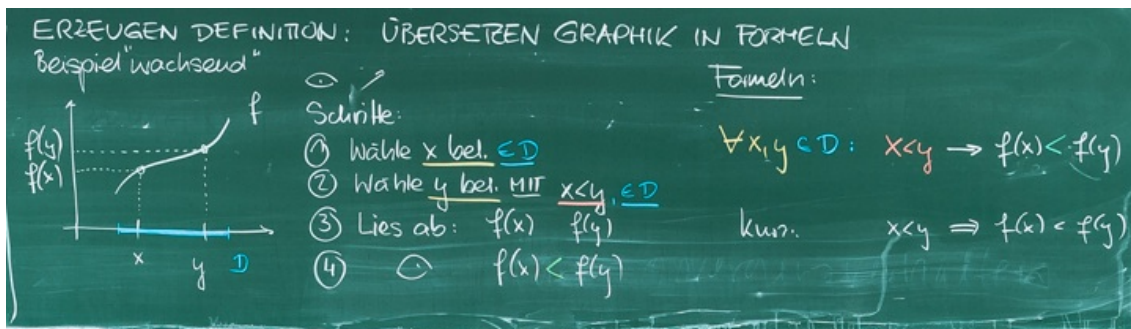 ERZEUGEN DEFINITION: ÜBERSETZEN GRAPHIK IN FORMELN
Beispiel "wachsend"
f
f(y)
f(x)
x y D
Schritte:
① Wähle x bel. ∈D
② Wähle y bel. MIT x<y, ∈D
③ Lies ab: f(x) f(y)
④ f(x) < f(y)
Formeln:
∀x,y ∈D: x<y → f(x) < f(y)
kurz: x<y ⇒ f(x) < f(y)